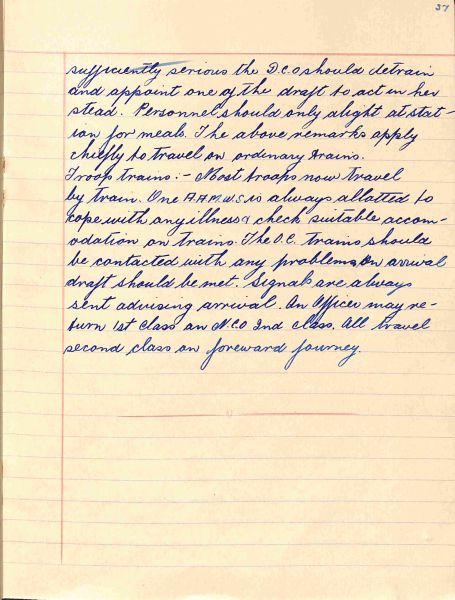 37
sufficiently serious the D.C.O should detrain
and appoint one of the draft to act in her
stead. Personnel should only alight at stat-
ion for meals. The above remarks apply
chiefly to travel on ordinary trains.
Troop trains:- Most troops now travel
by train. One A.A.M.W.S. is always allotted to
cope with any illness & check suitable accom-
odation on trains. The O.C. trains should
be contacted with any problems. On arrival
draft should be met. Signals are always
sent advising arrival. An Officer may re-
turn 1st Class an N.C.O 2nd class. All travel
second class on foreward journey.